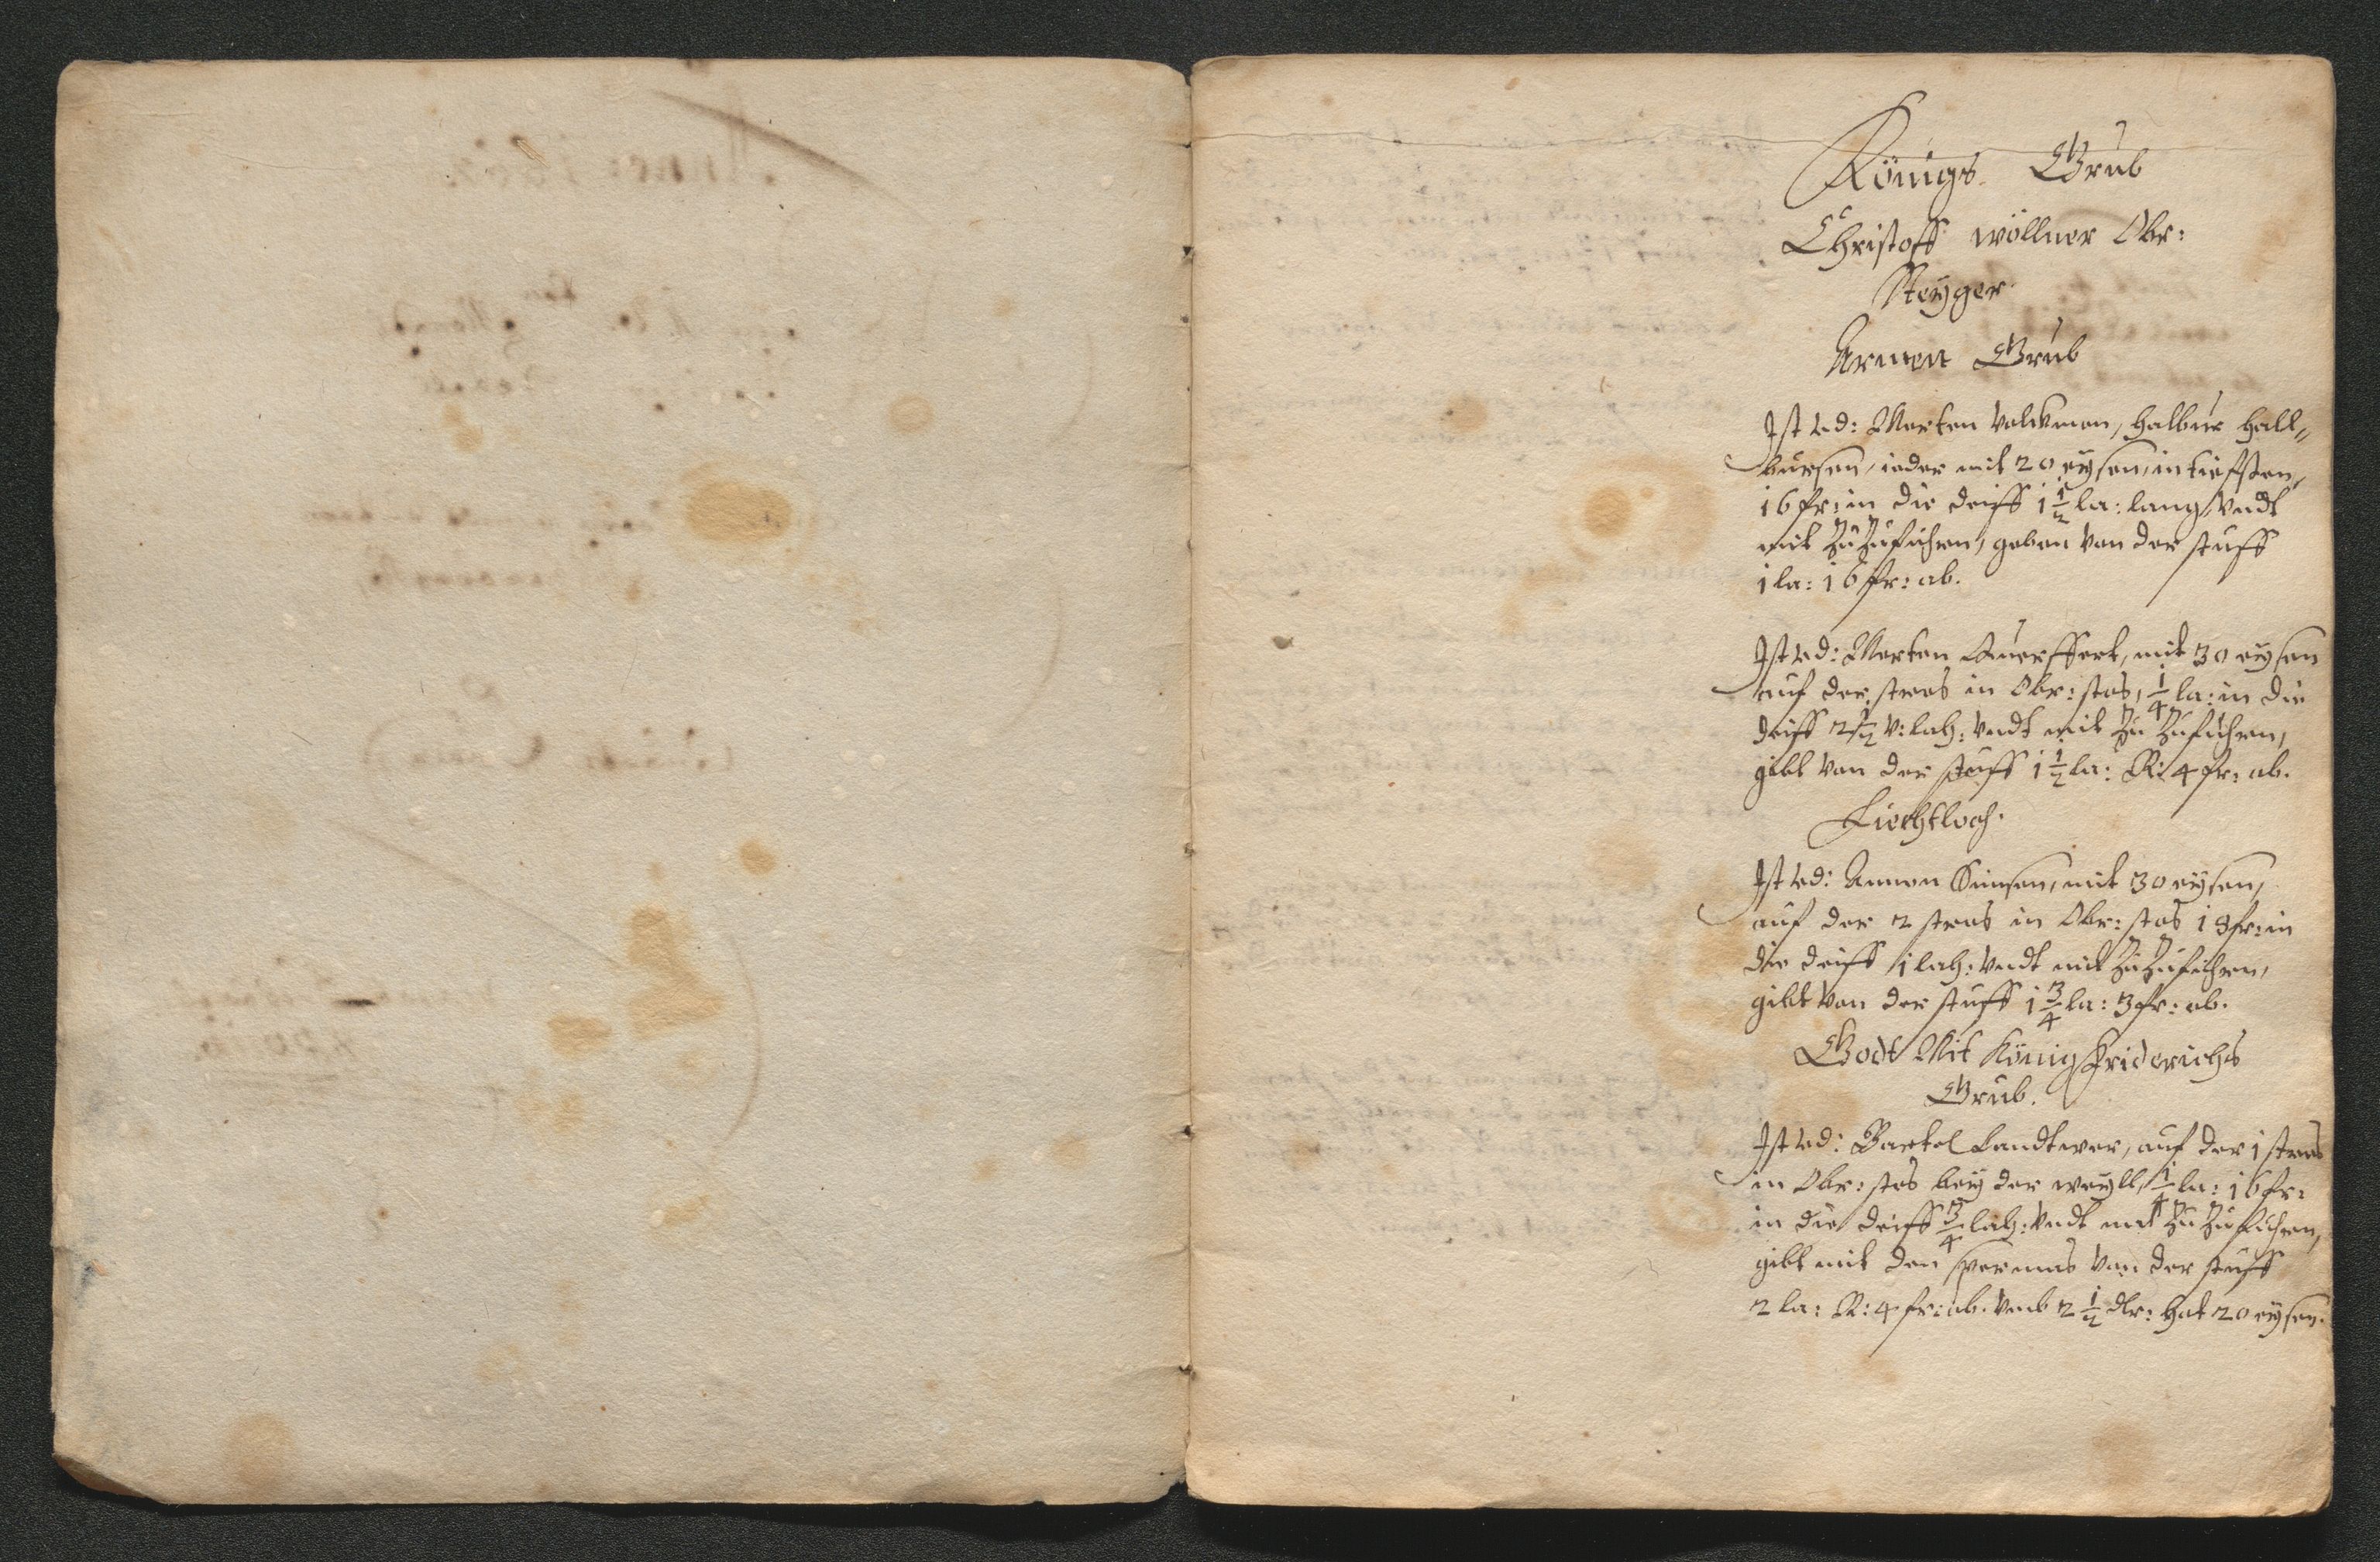 Königs Grub
Christoff wöllner Obr:
Steyger
Armen Grub
Ist vd: Merten Volckman, halbur hall„
bursen, ieder mit 20 eysen, in tiefsten,
16 fr: in die deiff 1 1/2 la: lang, Vndt
mit Zu Zufuhren, geben Von der stuff
1 la: 16 fr: ab.
Ist vd: Merten Querffert, mit 30 eysen
auf der stras in Obr: stos, 1/4 la: in die
deiff 2 1/2 v: lah: Vndt mit Zu Zufuhren,
gibt Von der stuff 1 1/2 la: R: 4 fr: ab.
Liechtloch.
Ist vd: Simsen, mit 30 eysen,
auf der 2 stras in Obr: stos 18 fr: in
die deiff 1 lah: Vndt mit Zu Zufuhren,
gibt Von der stuff 1 3/4 la: 3 fr: ab.
Godt Mit König Friderichs
Grub.
Ist vd: Bartel Landtwer, auf der 1 stras
in Obr: stos bey der weyll, 1/4 la: 16 fr:
in die deiff 3/4 lah: Vndt mit Zu Zufuhren,
gibt mit den Von der stuff
2 la: R: 4 fr: ab. Vmb 2 1/2 dlr: hat 20 eysen.